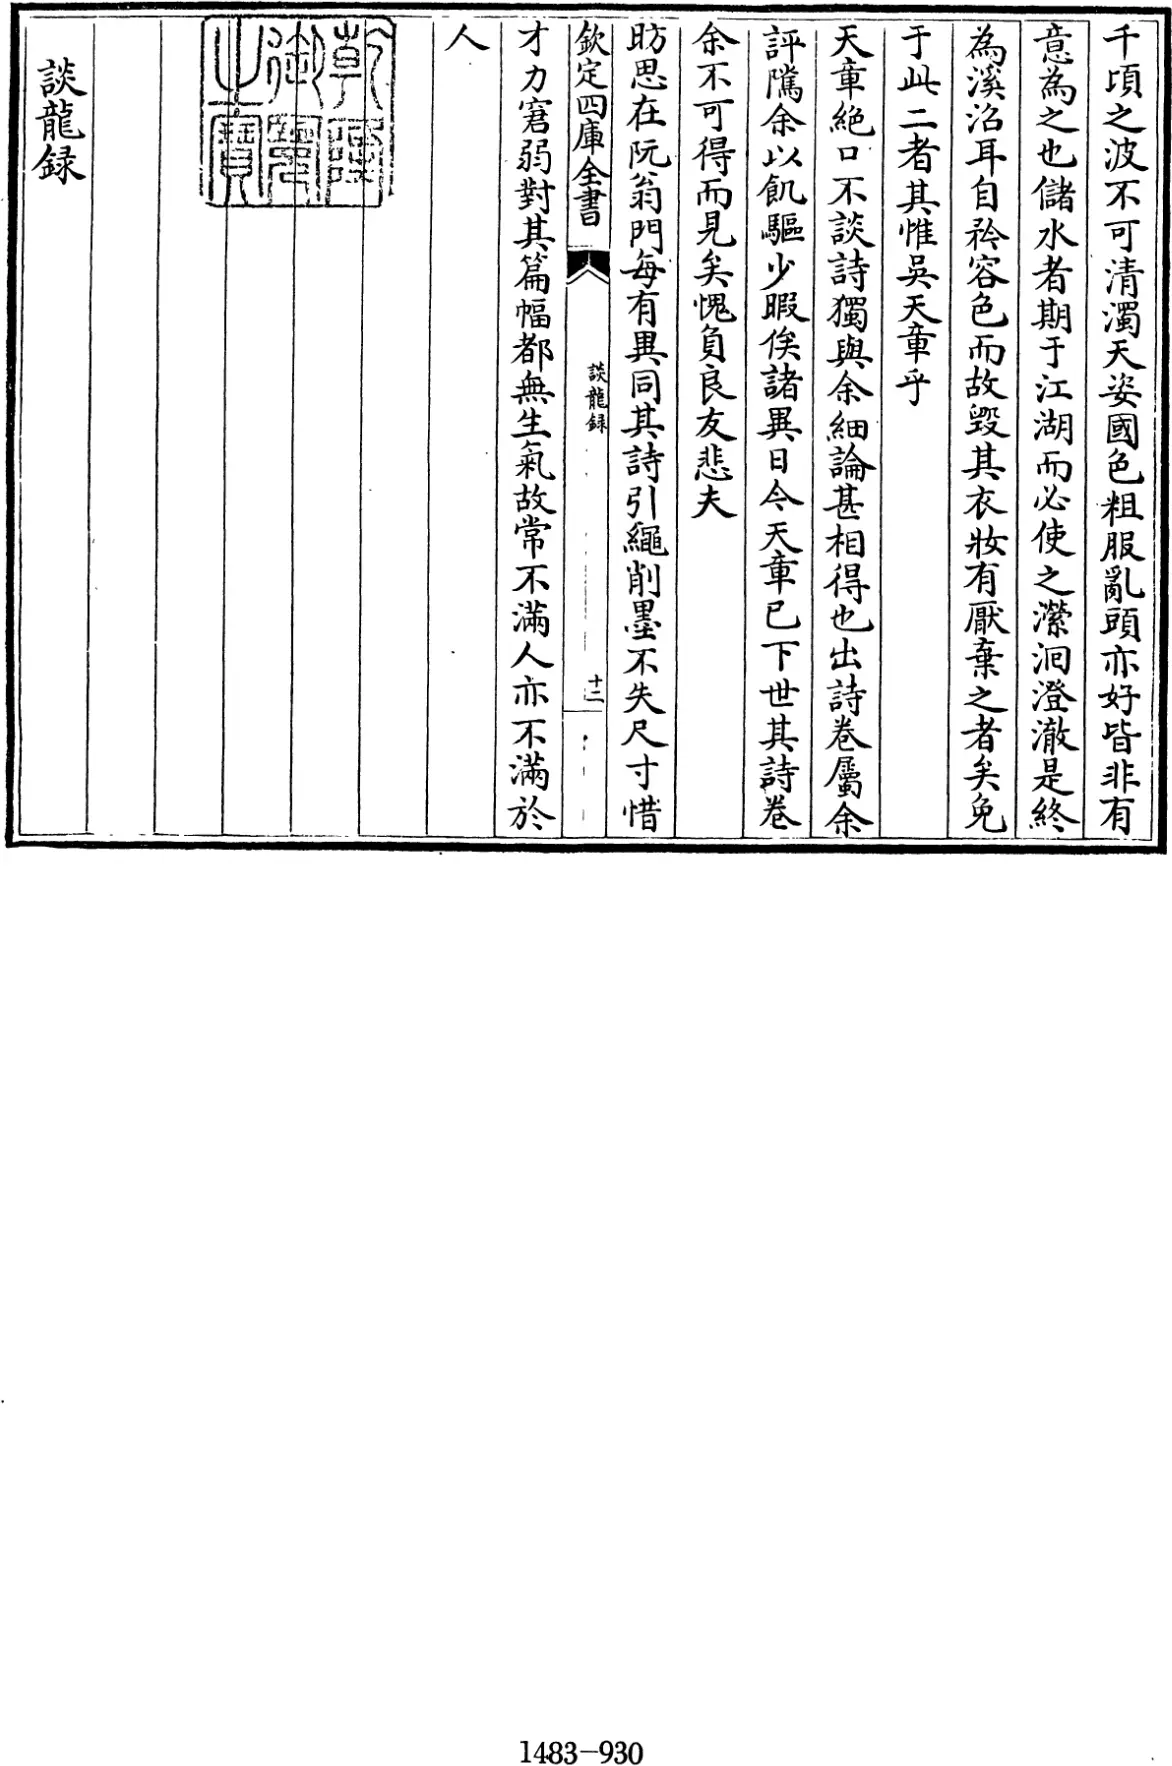 千頃之波不可清濁天姿國色粗服亂頭亦好皆非有
意為之也儲水者期于江湖而必使之瀠洄澄澈是終
為溪沼耳自矜容色而故毀其衣妝有厭棄之者矣免
于此二者其惟吳天章乎
天章絶口不談詩獨與余細論甚相得也出詩卷屬余
評隲余以飢驅少暇俟諸異日今天章已下世其詩卷
余不可得而見矣愧負良友悲夫
昉思在阮翁門每有異同其詩引繩削墨不失尺寸惜
欽定四庫全書
談龍録
十二
才力窘弱對其篇幅都無生氣故常不滿人亦不滿於
人
乾隆御覽之寶
談龍録
1483-930